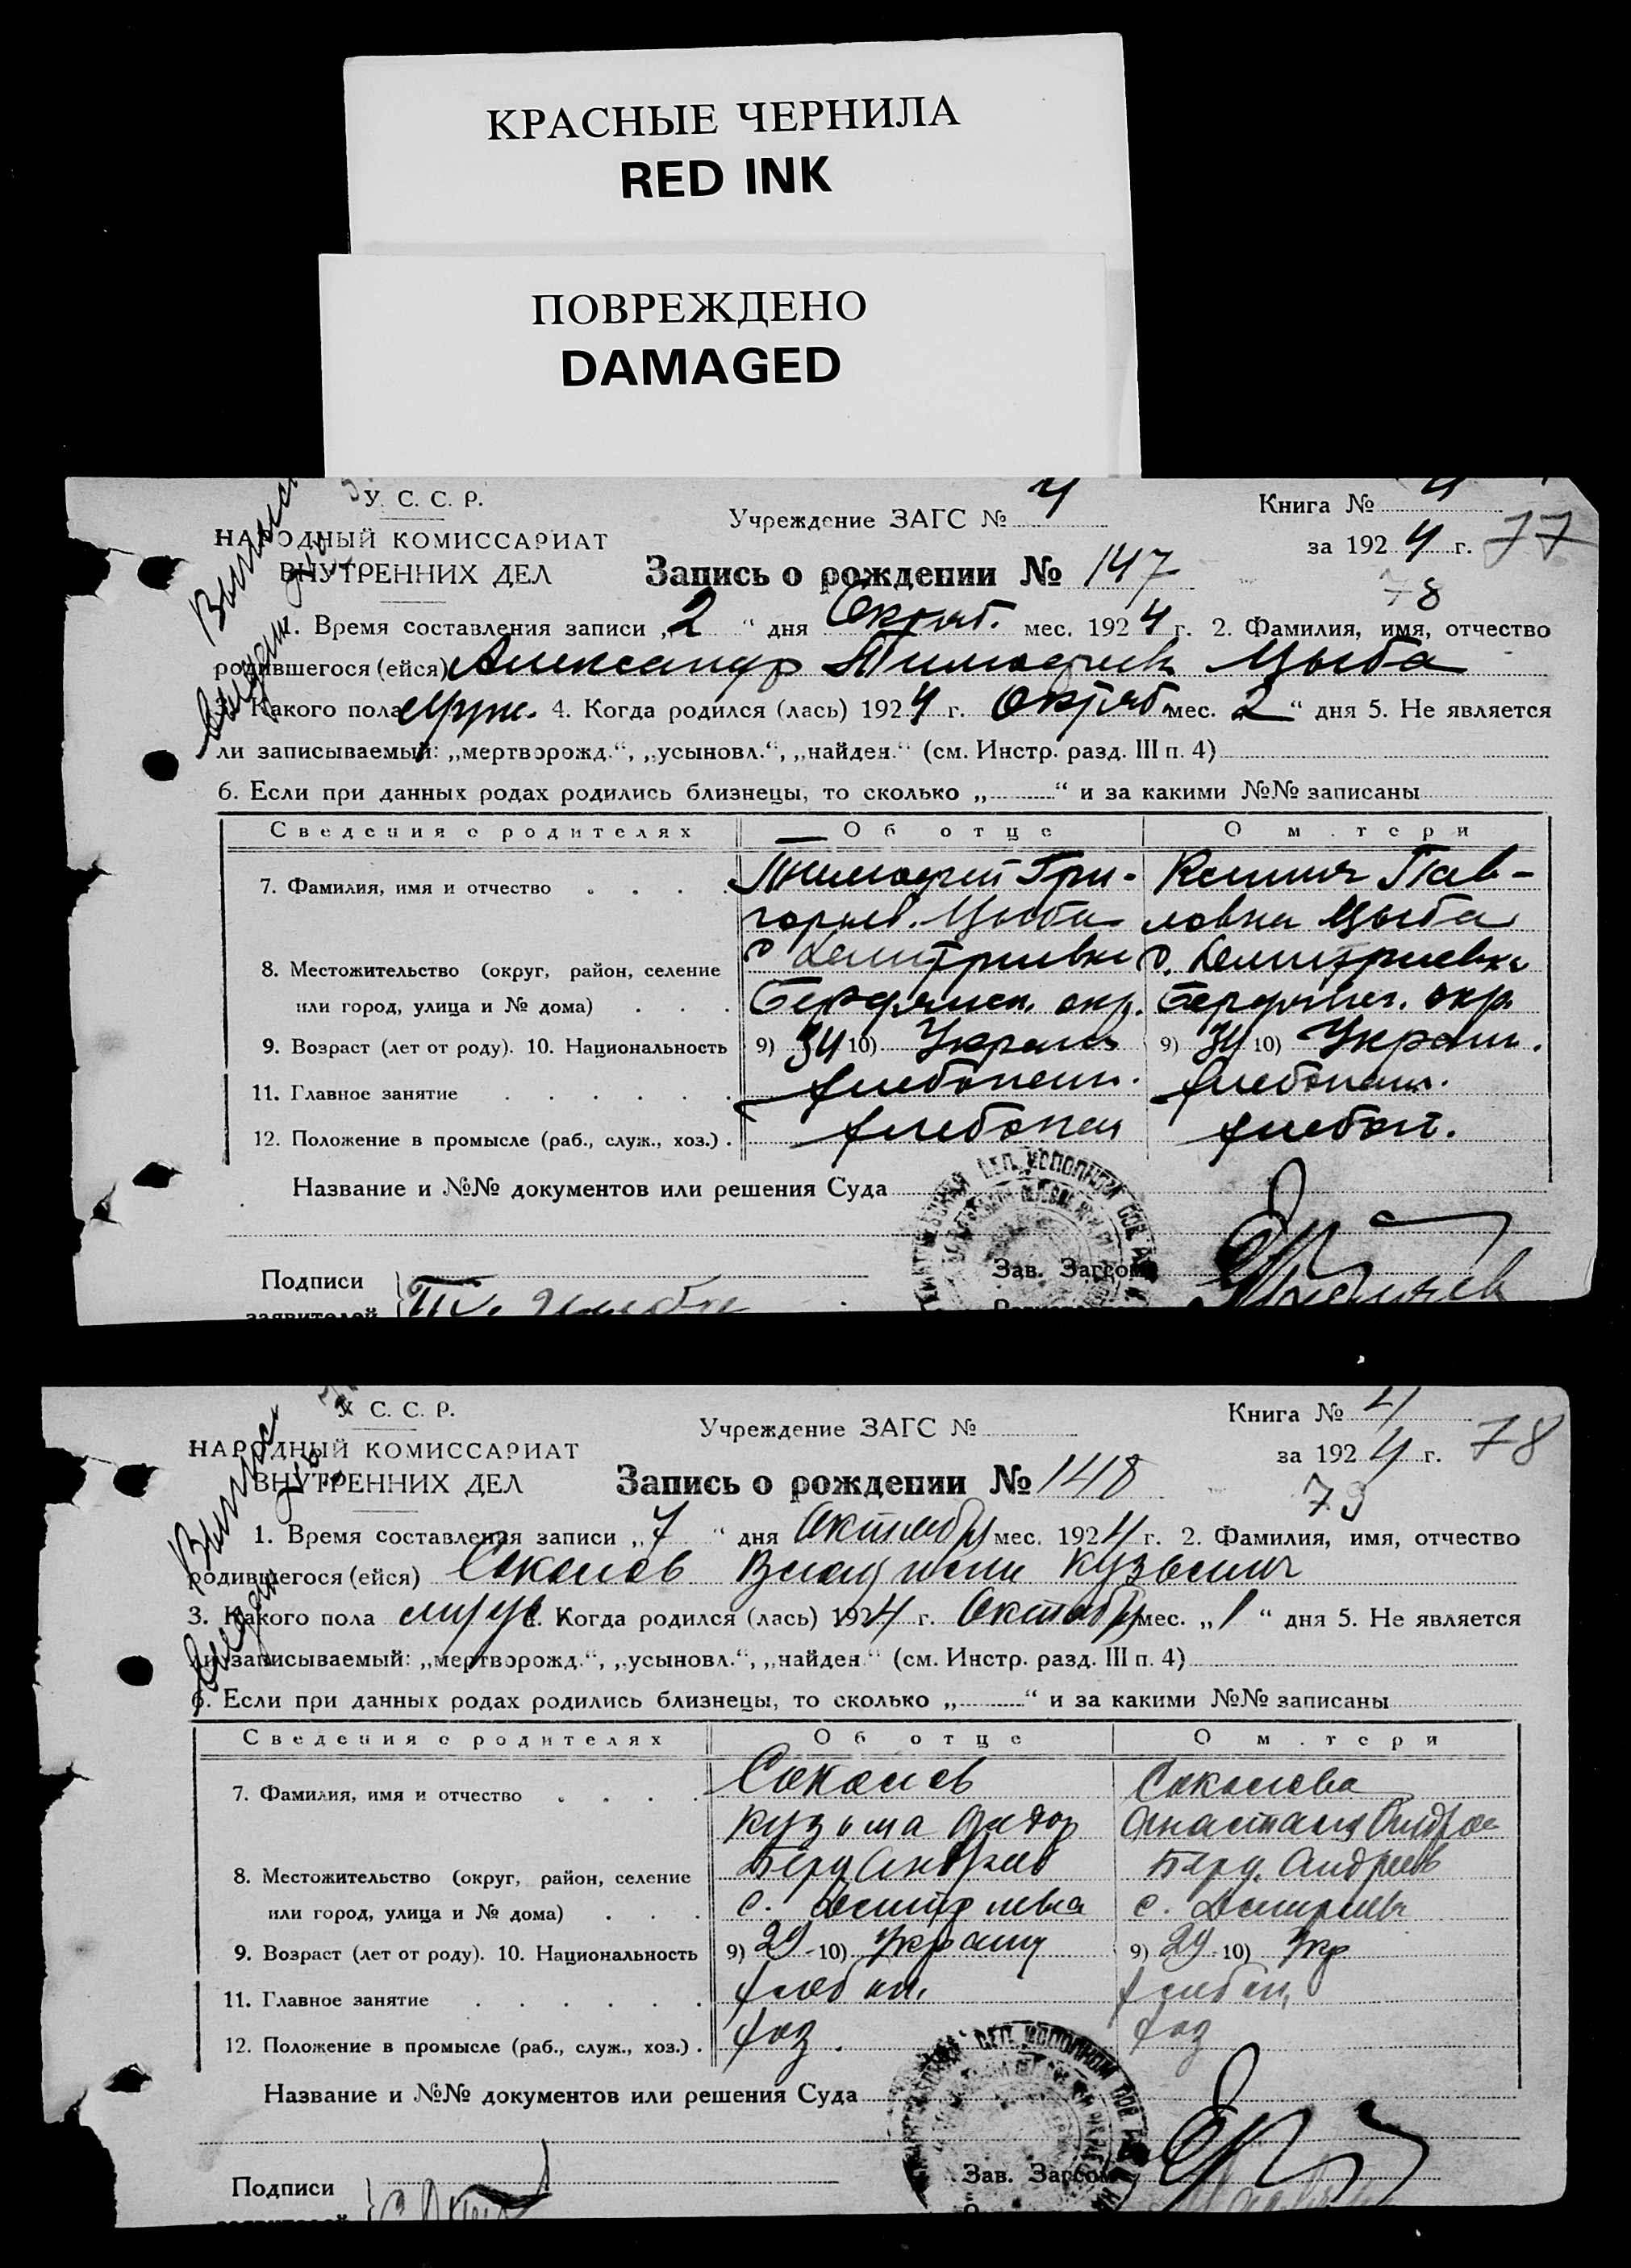 КРАСНЫЕ ЧЕРНИЛА
RED INK
ПОВРЕЖДЕНО
DAMAGED
У. С. С. Р.
НАРОДНЫЙ КОМИССАРИАТ
ВНУТРЕННИХ ДЕЛ
Учреждение ЗАГС № 4
Книга № 4
за 1924 г. 77
78
Запись о рождении № 147
1. Время составления записи „2“ дня Октяб. мес. 1924 г. 2. Фамилия, имя, отчество
родившегося (ейся) Александр Тимофеев Цыба
3. Какого пола муж. 4. Когда родился (лась) 1924 г. Октяб. мес. 2“ дня 5. Не является
ли записываемый: „мертворожд.“, „усыновл.“, „найден.“ (см. Инстр. разд. III п. 4)
6. Если при данных родах родились близнецы, то сколько „ “ и за какими №№ записаны
Сведения о родителях Об отце О матери
7. Фамилия, имя и отчество Тимофей Гри- Ксения Пав-
горьев. Цыба ловна Цыба
8. Местожительство (округ, район, селение с. Демитриевка с. Демитриевка
или город, улица и № дома) Бердянск. окр. Бердянск. окр.
9. Возраст (лет от роду). 10. Национальность 9) 34 10) Украин 9) 34 10) Украин.
11. Главное занятие хлебопаш. хлебопаш.
12. Положение в промысле (раб., служ., хоз.). хлебопаш хлебоп.
Название и №№ документов или решения Суда
Подписи
заявителей Т. Цыба
Зав. Загсом
У. С. С. Р.
НАРОДНЫЙ КОМИССАРИАТ
ВНУТРЕННИХ ДЕЛ
Учреждение ЗАГС №
Книга № 4
за 1924 г. 78
79
Запись о рождении № 148
1. Время составления записи „7“ дня Октября мес. 1924 г. 2. Фамилия, имя, отчество
родившегося (ейся) Соколов Кузьмич
3. Какого пола муж 4. Когда родился (лась) 1924 г. Октября мес. „1“ дня 5. Не является
ли записываемый: „мертворожд.“, „усыновл.“, „найден.“ (см. Инстр. разд. III п. 4)
6. Если при данных родах родились близнецы, то сколько „ “ и за какими №№ записаны
Сведения о родителях Об отце О матери
7. Фамилия, имя и отчество Соколов Соколова
Кузьма Анастасия
8. Местожительство (округ, район, селение Берд Андреев Берд. Андреев
или город, улица и № дома) с. Демитриевка с. Демитриев
9. Возраст (лет от роду). 10. Национальность 9) 29 10) Украин 9) 29 10) Укр
11. Главное занятие хлебоп. хлебоп.
12. Положение в промысле (раб., служ., хоз.). хоз. хоз
Название и №№ документов или решения Суда
Подписи
заявителей
Зав. Загсом